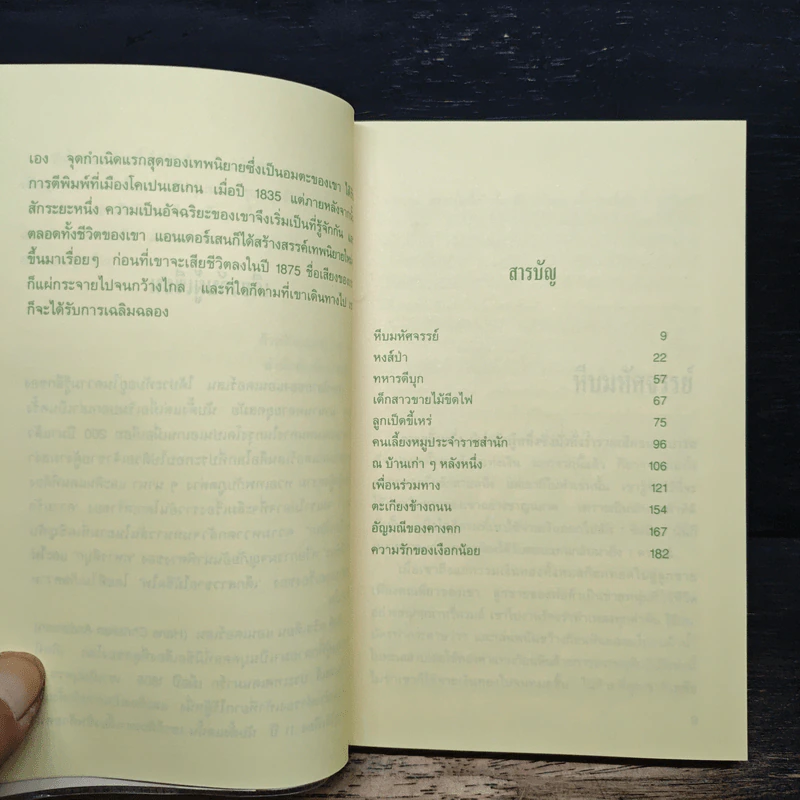 เอง จุดกำเนิดแรกสุดของเทพนิยายซึ่งเป็นอมตะของเขา
การตีพิมพ์ที่เมืองโคเปนเฮเกน เมื่อปี 1835 แต่ภายหลังจาก
สักระยะหนึ่ง ความเป็นอัจฉริยะของเขาจึงเริ่มเป็นที่รู้จักกัน
ตลอดทั้งชีวิตของเขา แอนเดอร์เสนก็ได้สร้างสรรค์เทพนิยาย
ขึ้นมาเรื่อยๆ ก่อนที่เขาจะเสียชีวิตลงในปี 1875 ชื่อเสียงของ
ก็แผ่กระจายไปจนกว้างไกล และที่ใดก็ตามที่เขาเดินทางไป
ก็จะได้รับการเฉลิมฉลอง
สารบัญ
หีบมหัศจรรย์ 9
หงส์ป่า 22
ทหารดีบุก 57
เด็กสาวขายไม้ขีดไฟ 67
ลูกเป็ดขี้เหร่ 75
คนเลี้ยงหมูประจำราชสำนัก 96
ณ บ้านเก่า ๆ หลังหนึ่ง 106
เพื่อนร่วมทาง 121
ตะเกียงข้างถนน 154
อัญมณีของคางคก 167
ความรักของเงือกน้อย 182